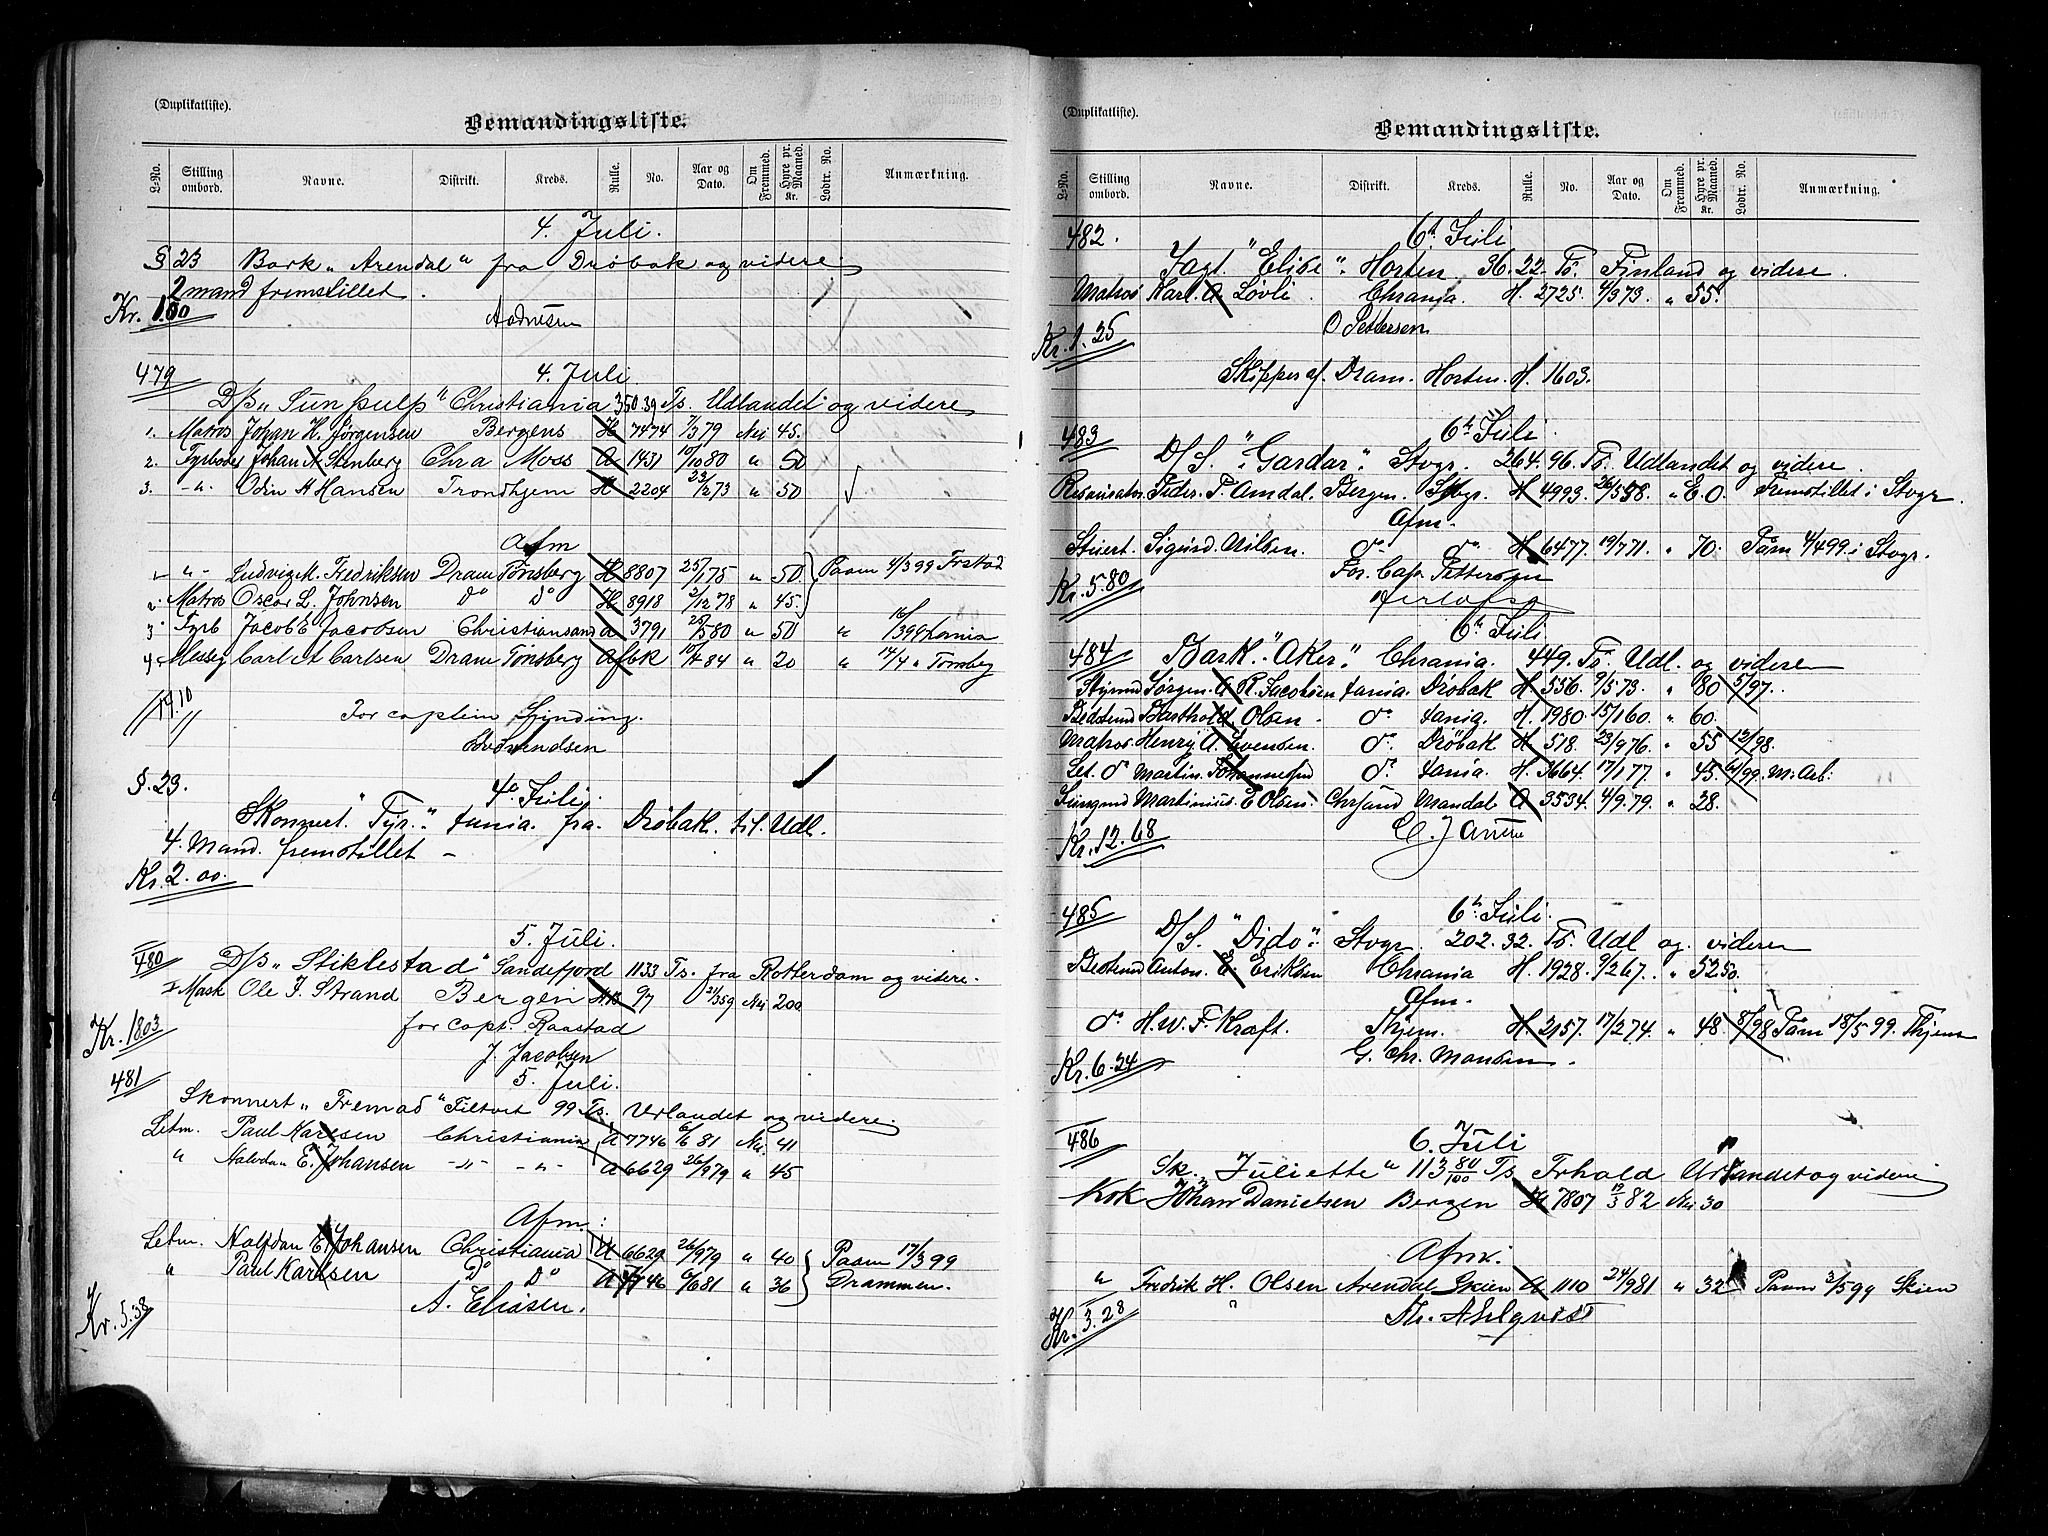 (Duplikatliste).
Bemandingsliste.
L-No. Stilling ombord. Navne. Distrikt. Kreds. Rulle. No. Aar og Dato. Om Fremmed. Hyre pr. Maaned. Kr. Lodtr. No. Anmærkning.
4. Juli.
§ 23 Bark „Arendal“ fra Drøbak og videre
2 mand fremstillet.
Kr. 1.00
479 4. Juli.
D/S „Sun Christiania 350.39 Ts. Udlandet og videre
1. Matros Johan H. Jørgensen Bergens H 7474 7/3 79 Nei 45.
2. Fyrbøder Johan A Stenberg Chra Moss A 1431 10/10 80 „ 50
3. -„- Odin A Hansen Trondhjem H 2204 23/2 73 „ 50
Afm
1 -„- Ludvig M. Fredriksen Dram Tønsberg H 8807 25/1 75 „ 50 Paam 4/3 99 Frstad
2. Matros Oscar L. Johnsen Do Do H 8918 2/12 78 „ 45.
3 Fyrb Jacob E Jacobsen Christiansand A 3791 25/5 80 „ 50 „
4. Messeg Carl A Carlsen Dram Tønsberg Afbk 10/4 84 „ 20 „ 14/4 „ Tønsberg
For captein Hinding.
§. 23. 4de Juli.
Skonnert. "Tyr." tania. fra. Drøbak. til. Udl.
4. Mand. fremstillet –
Kr. 2.00.
5. Juli.
480 D/S „Stiklestad“ Sandefjord 1133 Ts. fra Rotterdam og videre.
Mask Ole J. Strand Bergen 97 21/3 59 Nei 200
for capt. Raastad
Kr. 1803
J. Jacobsen
481 5. Juli.
Skonnert „Fremad“ Filtvet 99 Ts. Udlandet og videre.
Letm. Paul Karlsen Christiania A 7746 6/6 81 Nei 41
„ Halvdan E. Johansen -„- -„- A 6629 26/9 79 „ 45
Afm.:
Letm. Halfdan E. Johansen Christiania A 6629 26/9 79 „ 40 Paam 17/3 99
„ Paul Karlsen Do Do A 7746 6/6 81 „ 36 Drammen.
A. Eliasen.
Kr. 5.38
(Duplikatliste).
Bemandingsliste.
L-No. Stilling ombord. Navne. Distrikt. Kreds. Rulle. No. Aar og Dato. Om Fremmed. Hyre pr. Maaned. Kr. Lodtr. No. Anmærkning.
482. 6te Juli
Jagt. "Elise". Horten 36.22 Ts. Finland og videre.
Matros Karl. A. Løvli. Chrania. H. 2725. 4/3 73. „ 55.
O Pettersen
Kr. 1.25
Skipper af. Dram. Horten. H. 1603.
483 6te Juli.
D/S. "Gardar". Stvgr. 264.96. Ts. Udlandet og videre.
Peder. T. Amdal. Bergen. Stvgr. H 4993. 26/5 58. „ E.O. Fremstillet i Stvgr.
Afm.
Stuert. Sigurd. Nilsen. do do H 6477. 19/7 71. „ 70. Påm 4/4 99 i Stvgr.
For. Cap. Pettersen
Kr. 5.80
6te Juli
484 Bark. "Aker." Chrania. 449. Ts. Udl. og videre
Styrmd Jørgen. A R. Jacobsen tania. Drøbak H 556. 9/5 73. „ 80 5/97.
Bedstemd Barthold. Olsen. do tania. H. 1980. 15/1 60. „ 60.
Matros. Henry A. Svensen. do Drøbak H 518. 23/9 76. „ 55 12/98.
Let. do Martin. Johannesen do tania. H. 3664. 17/1 77. „ 45. 99. M. Arb:
Jungmd Martinius. E Olsen. Chrsand Mandal A 3534. 4/9. 79. „ 28.
Kr. 12.68
485 6te Juli.
D/S. "Dido". Stvgr. 202.32. Ts. Udl og. videre
Bestmd Anton. E. Eriksen Chrania H. 1928. 9/2 67. „ 52 50.
Afm.
do H. W. F. Kraft. Thjem. H 2157. 17/2 74. „ 48. 8/98 Påm 18/5 99. Thjem
G. Chr. Monsen.
Kr. 6.24
486 6. Juli
Sk. „Juliette“ 113 80/100 Ts Frhald Udlandet og videre
Kok Johan Danielsen Bergen H 7807 19/3 82 Nei 30
Afm.
„ Fredrik H. Olsen Arendal Skien A 1110 24/9 81 „ 32 Paam 3/5 99 Skien
Th. Ahlqvist
Kr. 3.28